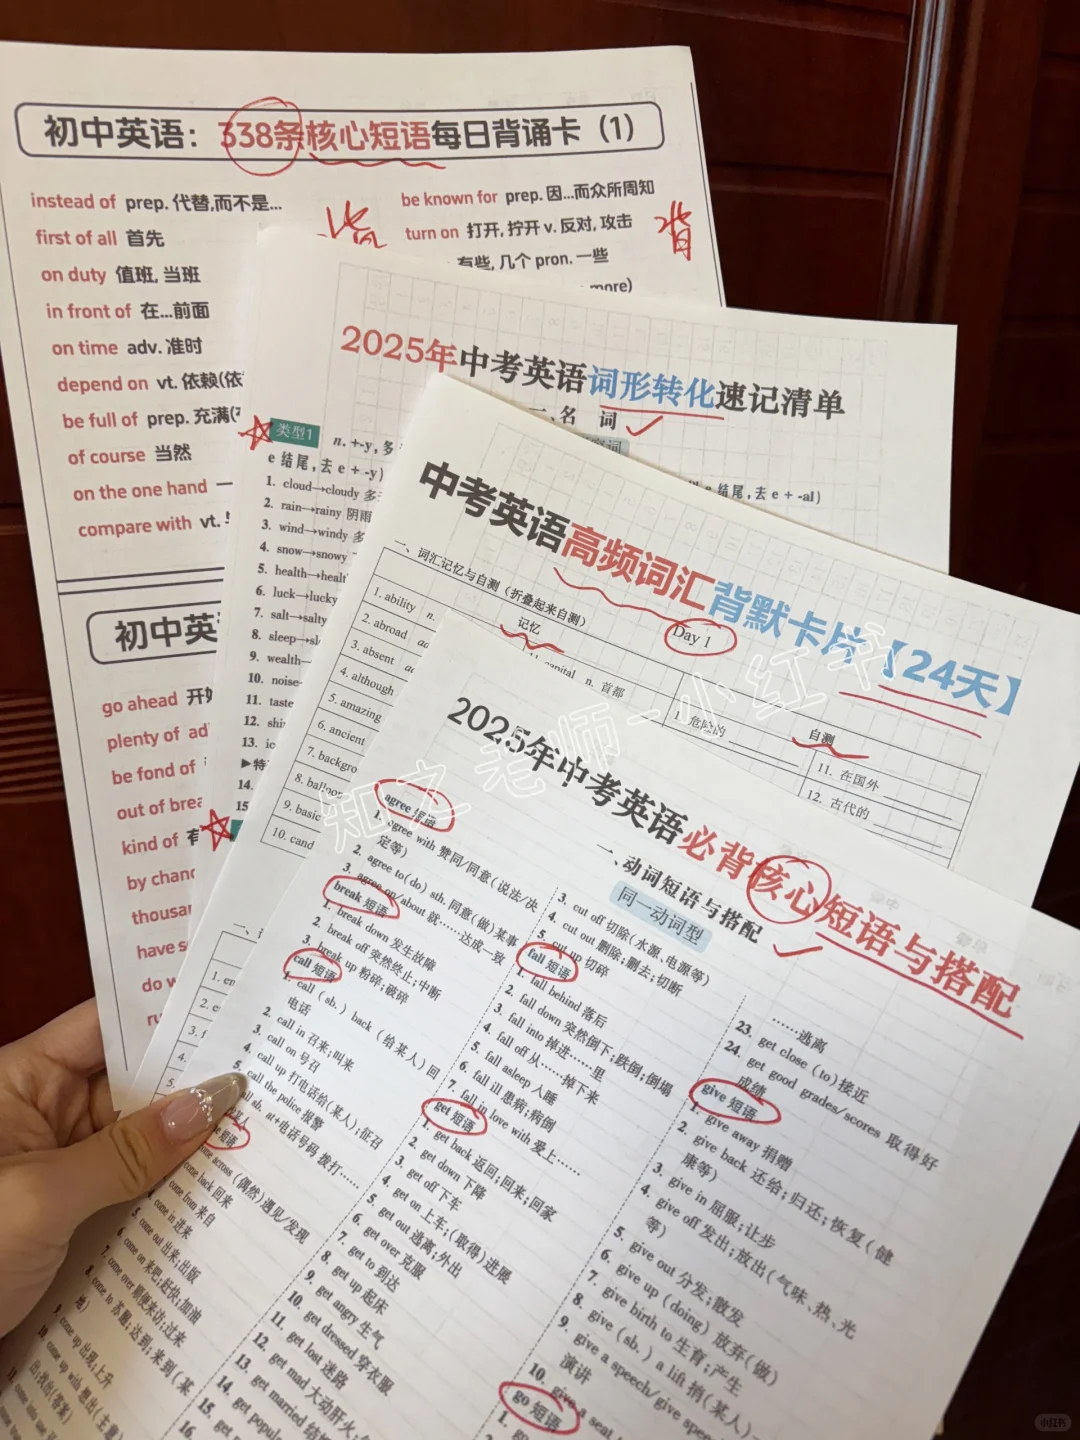 初中英语：338条核心短语每日背诵卡（1）
instead of prep. 代替,而不是...
first of all 首先
on duty 值班, 当班
in front of 在...前面
on time adv. 准时
depend on vt. 依赖(依
be full of prep. 充满(
of course 当然
on the one hand 一
compare with vt.
be known for prep. 因...而众所周知
turn on 打开, 拧开 v. 反对, 攻击
有些, 几个 pron. 一些
more)
背
初中英
go ahead 开始
plenty of ad
be fond of
out of brea
kind of 有
by chanc
thousan
have s
do w
ru
2025年中考英语词形转化速记清单
一、名 词
类型1
n. +-y, 多
e 结尾, 去 e + -y)
结尾, 去 e + -al)
1. cloud→cloudy 多
2. rain→rainy 阴雨
3. wind→windy 多
4. snow→snowy
5. health→healt
6. luck→lucky
7. salt→salty
8. sleep→sl
9. wealth→
10. noise→
11. taste
12. shi
13. ic
▶特
14.
15
中考英语高频词汇背默卡片【24天】
一、词汇记忆与自测（折叠起来自测）
Day 1
记忆
自测
1. ability n.
2. abroad ad
3. absent ad
4. although
5. amazing
6. ancient
7. backgro
8. balloon
9. basic
10. cand
11. capital n. 首都
1. 危险的
11. 在国外
12. 古代的
2025年中考英语必背核心短语与搭配
一、动词短语与搭配
同一动词型
agree 短语
1. agree with 赞同/同意（说法/决
定等）
2. agree to(do) sth. 同意(做)某事
3. agree on/about 就……达成一致
break 短语
1. break down 发生故障
2. break off 突然终止;中断
3. break up 粉碎;破碎
call 短语
1. call（sb.）back（给某人）回
电话
2. call in 召来;叫来
3. call on 号召
4. call up 打电话给(某人);征召
5. call the police 报警
call sb. at+电话号码 拨打……
短语
come across（偶然）遇见/发现
come back 回来
come from 来自
4. come in 进来
5. come out 出来;出版
6. come on 来吧;赶快;加油
7. come over 顺便来访;过来
8. come to 苏醒;达到;来到(某
地)
9. come up 出现;上升
10. come up with 想出(主意)
3. cut off 切除(水源、电源等)
4. cut out 删除;删去;切断
5. cut up 切碎
fall 短语
1. fall behind 落后
2. fall down 突然倒下;跌倒;倒塌
3. fall into 掉进……里
4. fall off 从……掉下来
5. fall asleep 入睡
6. fall ill 患病;病倒
7. fall in love with 爱上……
get 短语
1. get back 返回;回来;回家
2. get down 下降
3. get off 下车
4. get on 上车;(取得)进展
5. get out 逃离;外出
6. get over 克服
7. get to 到达
8. get up 起床
9. get angry 生气
10. get dressed 穿衣服
11. get lost 迷路
12. get mad 大动肝火;
13. get married 结婚
14. get popula
15. get
16.
……逃离
23. get close（to）接近
24. get good grades/scores 取得好
成绩
give 短语
1. give away 捐赠
2. give back 还给;归还;恢复(健
康等)
3. give in 屈服;让步
4. give off 发出;放出(气味、热、光
等)
5. give out 分发;散发
6. give up (doing) 放弃(做)
7. give birth to 生育;产生
8. give（sb.）a lift 捎(某人)一
9. give a speech/give spee
演讲
10. give a seat t
go 短语
1. go
2.
知之老师-小红书
小红书